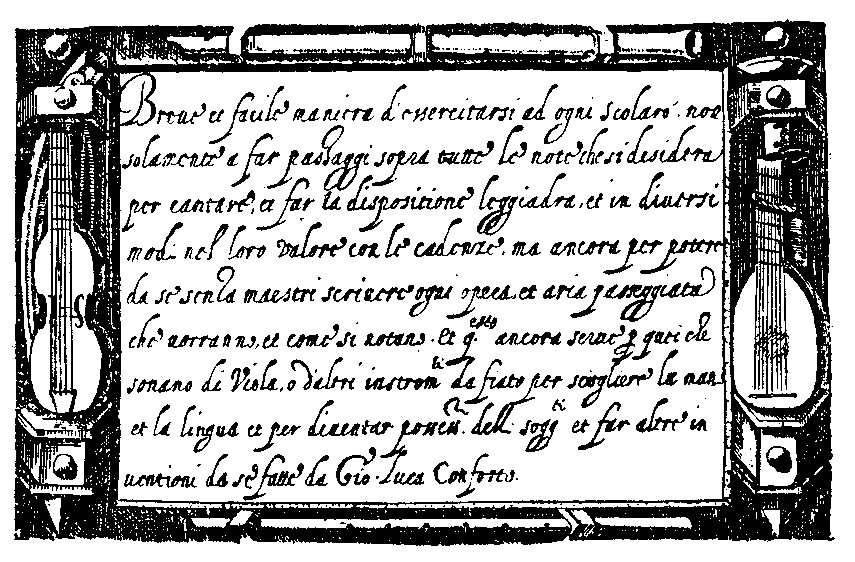 Breue et facile maniera d'essercitarsi ad ogni scolaro. non
solamente a far passaggi sopra tutte le note che si desidera
per cantare, et far la dispositione leggiadra, et in diuersi
modi nel loro valore con le cadenze, ma ancora per potere
da se senza maestri scriuere ogni opera, et aria passeggiata
che uorranno, et come si notano. Et q.esto ancora serue p quei che
sonano di Viola, o d'altri instrom.ti da fiato per sciogliere la man
et la lingua et per diuentar dell sogg.ti et far altre in
uentioni da se fatte da Gio. Luca Conforto.